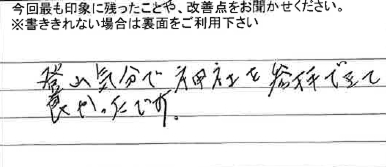 今回最も印象に残ったことや、改善点をお聞かせください。
※書ききれない場合は裏面をご利用下さい
登山気分で神社を参拝できて
良かったです。